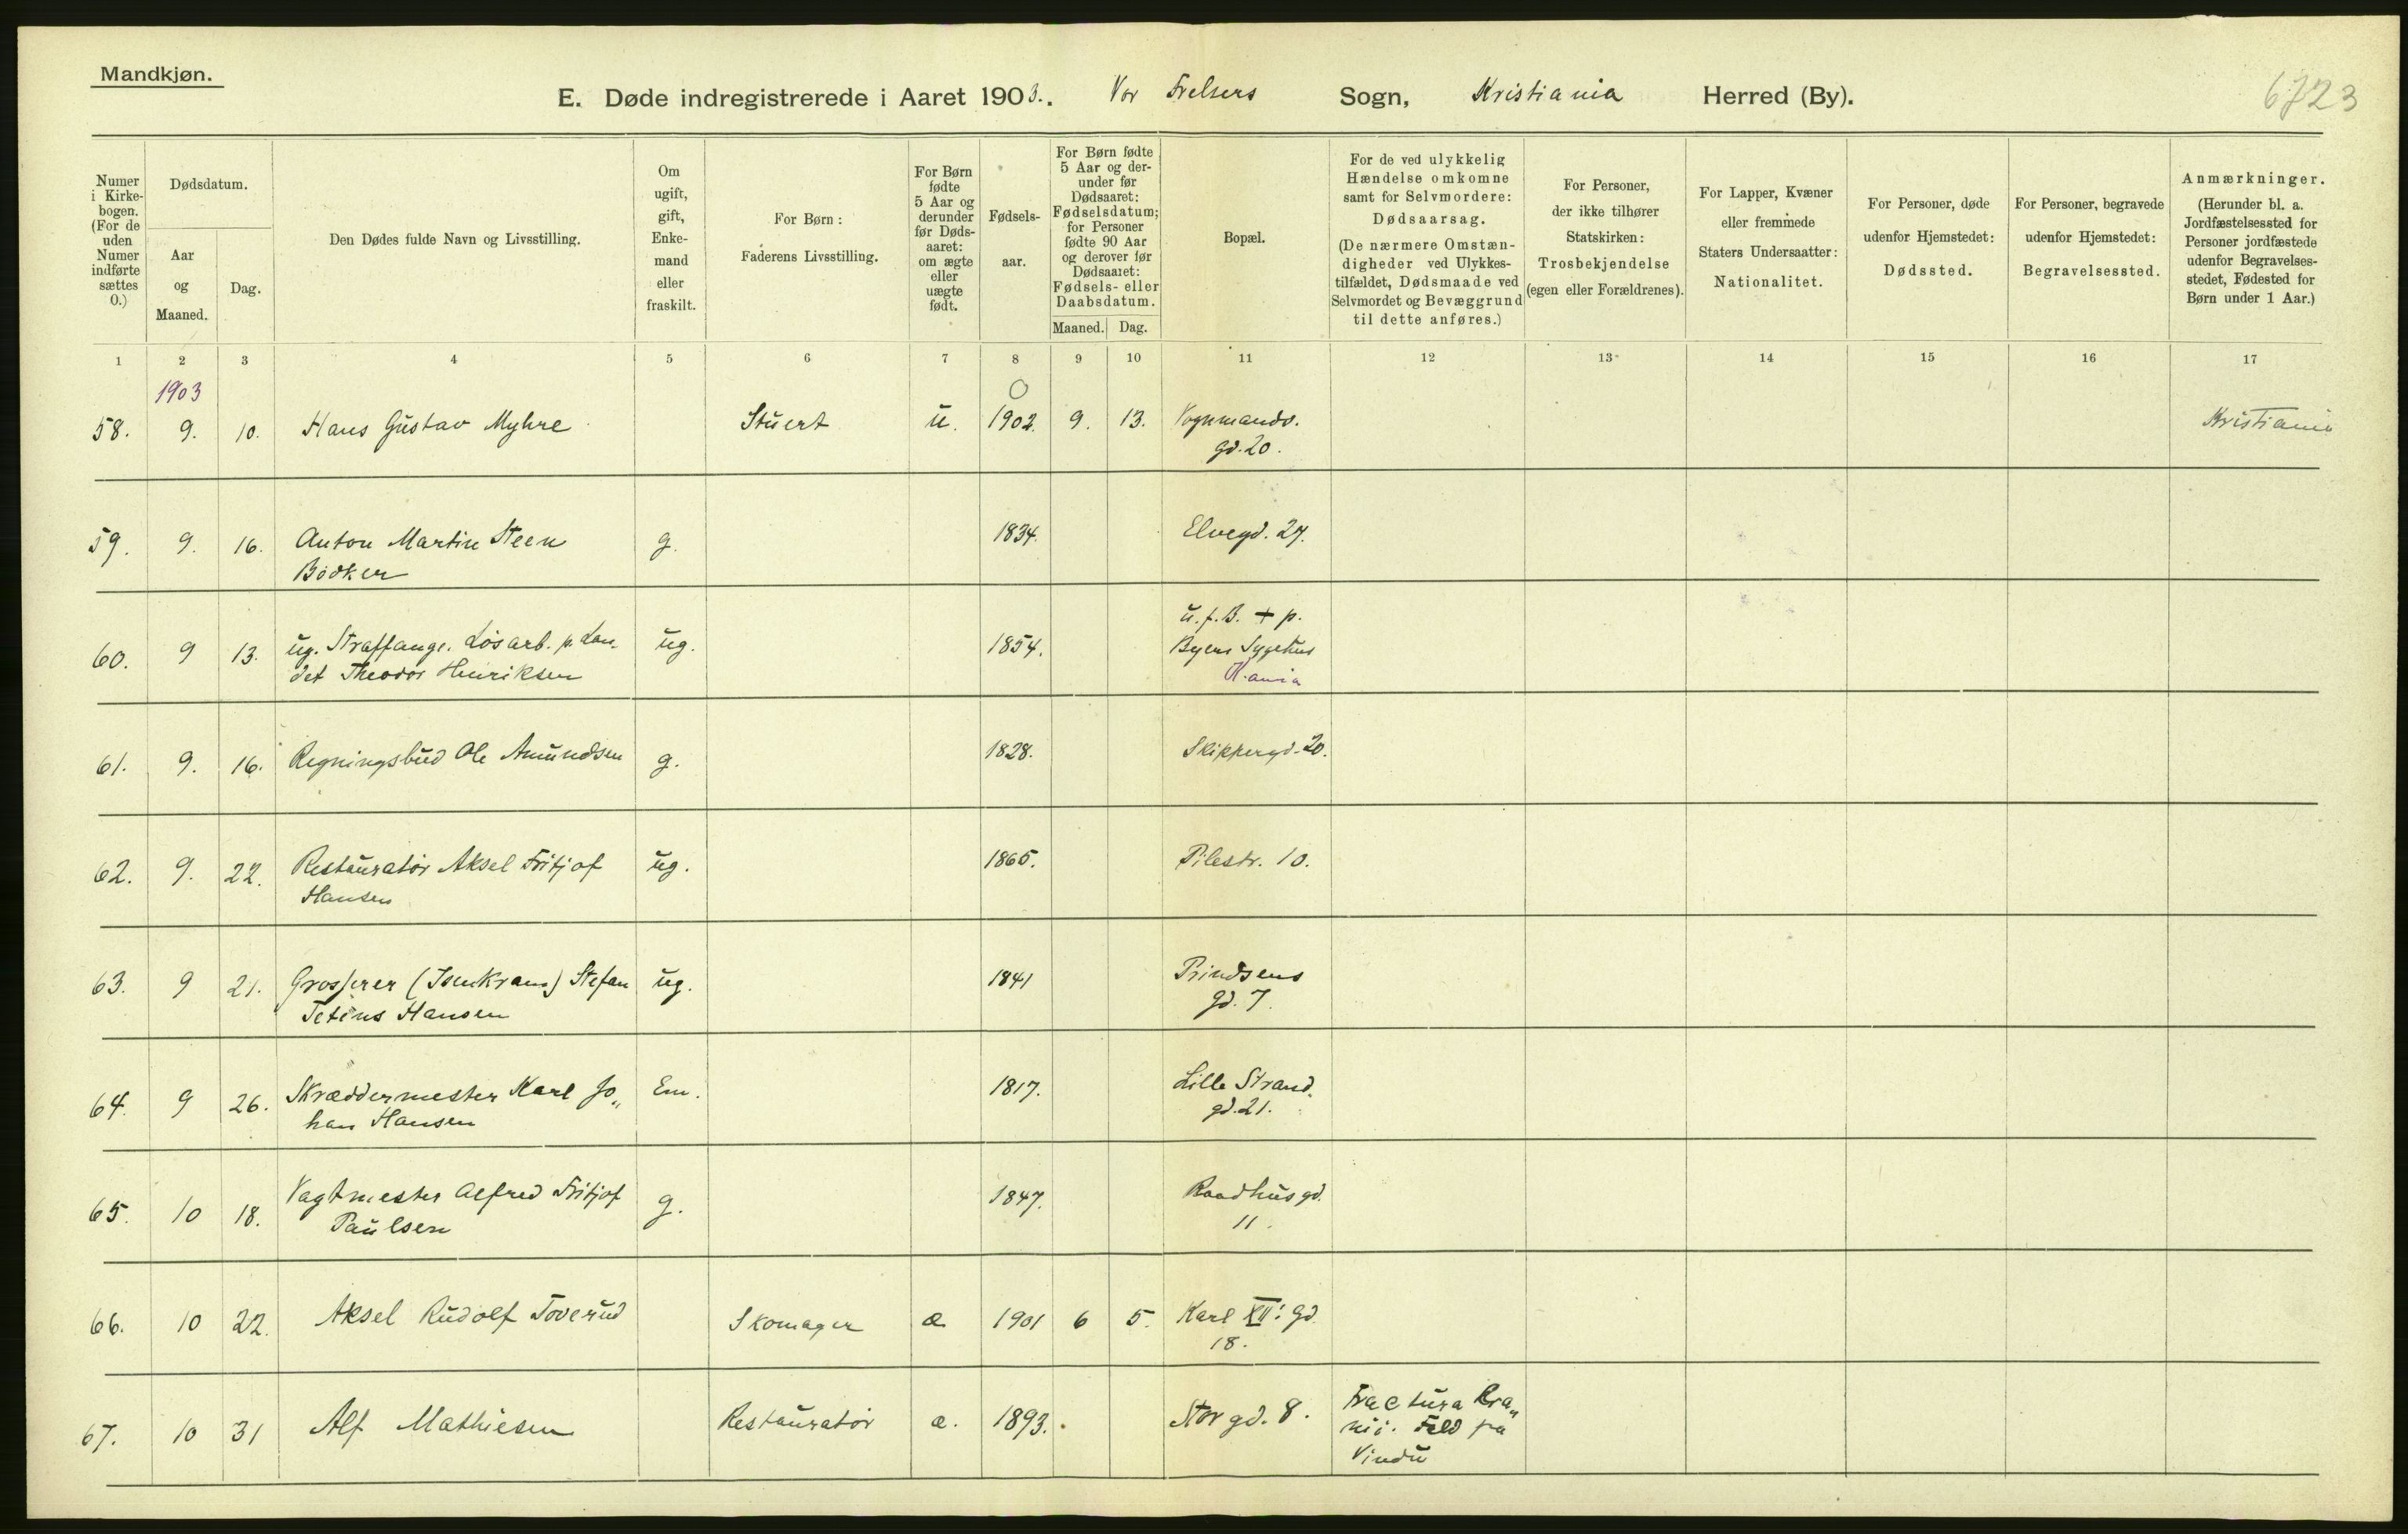 Mandkjøn.
E. Døde indregistrerede i Aaret 1903. Vor Frelsers Sogn, Kristiania Herred (By). 6723
Numer i Kirkebogen. (For de uden Numer indførte sættes 0.)
Dødsdatum.
Aar og Maaned.
Dag.
Den Dødes fulde Navn og Livsstilling.
Om ugift, gift, Enkemand eller fraskilt.
For Børn: Faderens Livsstilling.
For Børn fødte 5 Aar og derunder før Dødsaaret: om ægte eller uægte født.
Fødselsaar.
For Børn fødte 5 Aar og derunder før Dødsaaret: Fødselsdatum; for Personer fødte 90 Aar og derover før Dødsaaret: Fødsels- eller Daabsdatum.
Maaned. Dag.
Bopæl.
For de ved ulykkelig Hændelse omkomne samt for Selvmordere: Dødsaarsag. (De nærmere Omstændigheder ved Ulykkestilfældet, Dødsmaade ved Selvmordet og Bevæggrund til dette anføres.)
For Personer, der ikke tilhører Statskirken: Trosbekjendelse (egen eller Forældrenes).
For Lapper, Kvæner eller fremmede Staters Undersaatter: Nationalitet.
For Personer, døde udenfor Hjemstedet: Dødssted.
For Personer, begravede udenfor Hjemstedet: Begravelsessted.
Anmærkninger. (Herunder bl. a. Jordfæstelsessted for Personer jordfæstede udenfor Begravelsesstedet, Fødested for Børn under 1 Aar.)
1 2 3 4 5 6 7 8 9 10 11 12 13 14 15 16 17
1903 0
58. 9. 10. Hans Gustav Myhre Stuert u. 1902. 9. 13. Vognmands. Kristiania
gd. 20.
59. 9. 16. Anton Martin Steen g. 1834. Elvegd. 27.
Bödker
60. 9 13. ug. Straffange. Løsarb. p. Lan- ug. 1854. u. f. B. + p.
det Theodor Henriksen Byens Sygehus
K.ania
61. 9. 16. Regningsbud Ole Amundsen g. 1828. Skippergd. 20.
62. 9. 22. Restauratör Aksel Fritjof ug. 1865. Pilestr. 10.
Hansen
63. 9 21. Grosserer (Isenkram) Stefan ug. 1841 Prindsens
Hansen gd. 7.
64. 9 26. Skræddermester Karl Jo„ Em. 1817. Lille Strand.
han Hansen gd. 21.
65. 10 18. Vagtmester Alfred Fritjof g. 1847. Raadhusgd.
Paulsen 11.
66. 10 22. Aksel Rudolf Toverud Skomager æ 1901 6 5. Karl XII: Gd.
18.
67. 10 31 Alf Mathiesen Restauratör æ. 1893. Storgd. 8. Fractura Kra„
nii. Fald fra
Vindu